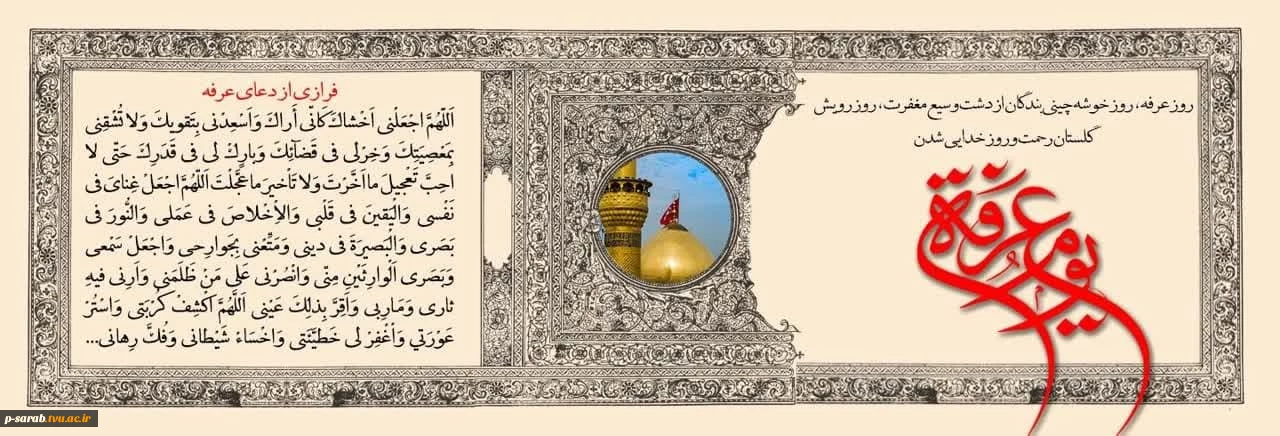 روز عرفه، روز خوشه چینی بندگان از دشت وسیع مغفرت، روز رویش
گلستان رحمت و روز خدایی شدن
يوم عرفة
فرازی از دعای عرفه
اَللّهُمَّ اجْعَلْنى اَخْشاكَ كَاَنّى أَراكَ وَاَسْعِدْنى بِتَقويكَ وَلا تُشْقِنى
بِمَعْصِيَتِكَ وَخِرْلى فى قَضآئِكَ وَبارِكْ لى فى قَدَرِكَ حَتّى لا
احِبَّ تَعْجيلَ ما اَخَّرْتَ وَلا تَاْخيرَ ما عَجَّلْتَ اَللّهُمَّ اجْعَلْ غِناىَ فى
نَفْسى وَالْيَقينَ فى قَلْبى وَالاِْخْلاصَ فى عَمَلى وَالنُّورَ فى
بَصَرى وَالْبَصيرَةَ فى دينى وَمَتِّعْنى بِجَوارِحى وَاجْعَلْ سَمْعى
وَبَصَرى اَلْوارِثَيْنِ مِنّى وَانْصُرْنى عَلى مَنْ ظَلَمَنى وَاَرِنى فيهِ
ثارى وَمَارِبى وَاَقِرَّ بِذلِكَ عَيْنى اَللَّهُمَّ اكْشِفْ كُرْبَتى وَاسْتُرْ
عَوْرَتي وَاْغْفِرْ لى خَطيَّئَتى وَاخْسَاءْ شَيْطانى وَفُكَّ رِهانى...
p-sarab.tvu.ac.ir